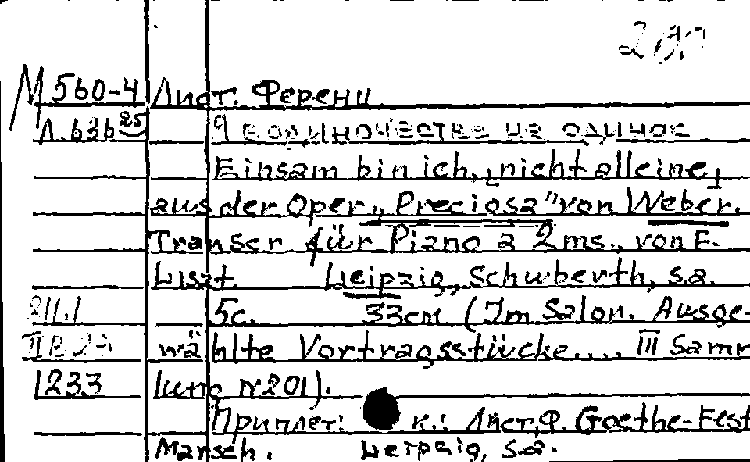 200
М 560-4 Лист. Ференц
Л. 636 25 Я в одиночестве не одинок
Einsam bin ich, nicht alleine,
aus der Oper „Preciosa" von Weber.
Transcr für Piano à 2 ms., von F.
Liszt Leipzig, Schuberth, s.a.
211.1 5с. 33cm (Im Salon. Ausge-
wählte Vortragsstücke.... III Samm
1233 lung №201).
Приплет: к.: Лист, Ф. Goethe-Fest
Marsch. Leipzig, s.a.